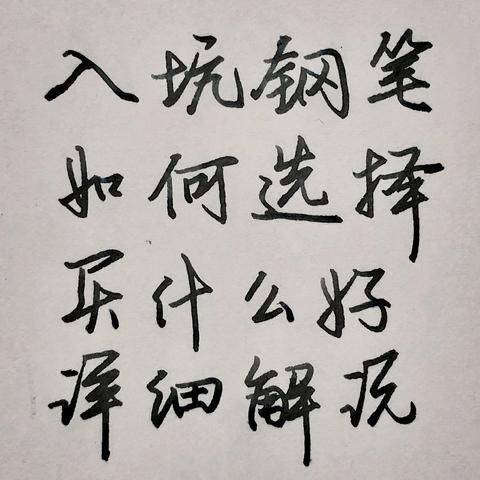 入坑钢笔
如何选择
买什么好
详细解说